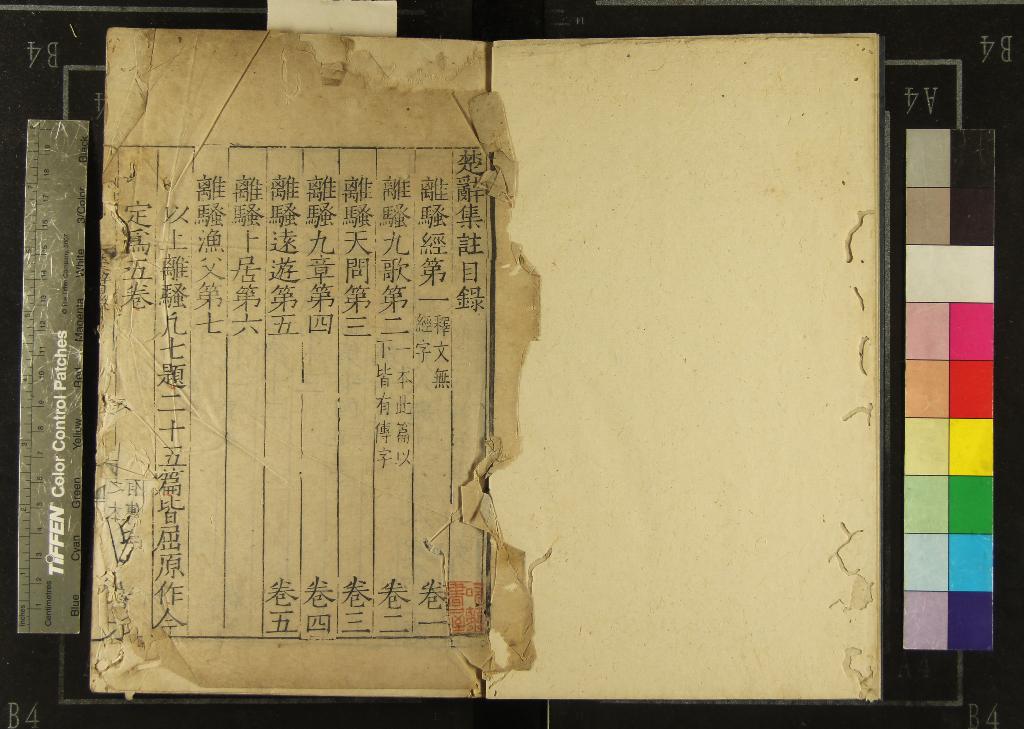 楚辭集註目錄
離騷經第一 釋文無經字 卷一
離騷九歌第二 一本此篇以下皆有傳字 卷二
離騷天問第三 卷三
離騷九章第四 卷四
離騷遠遊第五 卷五
離騷卜居第六
離騷漁父第七
以上離騷凡七題二十五篇皆屈原作今
定爲五卷
TIFFEN Color Control Patches
Inches
Centimetres
Blue
Cyan
Green
Yellow
Red
Magenta
White
3/Color
Black
B4
B4
A4
B4
B4